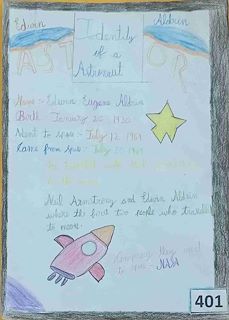 Edwin Aldrin
Identity
of a
Astronaut
AST OR
Name :- Edwin Eugene Aldrin
Birth January 20 1930
Went to space :- July 12, 1969
Came from space :- July 20 1969
to the moon
Neil Armstrong and Edwin Aldrin
where the first two people who travelled
to moon.
Company they used
to go :- NASA
401